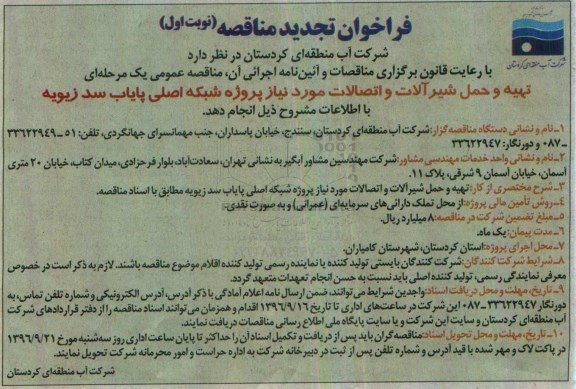 فراخوان تجدید مناقصه (نوبت اول)
شرکت آب منطقه‌ای کردستان
شرکت آب منطقه‌ای کردستان در نظر دارد
با رعایت قانون برگزاری مناقصات و آئین‌نامه اجرائی آن، مناقصه عمومی یک مرحله‌ای
تهیه و حمل شیرآلات و اتصالات مورد نیاز پروژه شبکه اصلی پایاب سد زیویه
با اطلاعات مشروح ذیل انجام دهد.
۱ـ نام و نشانی دستگاه مناقصه گزار: شرکت آب منطقه‌ای کردستان، سنندج، خیابان پاسداران، جنب مهمانسرای جهانگردی، تلفن: ۵۱ ـ ۳۳۶۲۲۹۴۹
ـ ۰۸۷ و دورنگار: ۳۳۶۲۲۹۴۷
۲ـ نام و نشانی واحد خدمات مهندسی مشاور: شرکت مهندسین مشاور آبگیر به نشانی تهران، سعادت‌آباد، بلوار فرحزادی، میدان کتاب، خیابان ۲۰ متری
آسمان، خیابان آسمان ۹ شرقی، پلاک ۱۱.
۳ـ شرح مختصری از کار: تهیه و حمل شیرآلات و اتصالات مورد نیاز پروژه شبکه اصلی پایاب سد زیویه مطابق با اسناد مناقصه.
۴ـ روش تأمین مالی پروژه: از محل تملک دارائی‌های سرمایه‌ای (عمرانی) و به صورت نقدی.
۵ـ مبلغ تضمین شرکت در مناقصه: ۸ میلیارد ریال.
۶ـ مدت پیمان: یک ماه.
۷ـ محل اجرای پروژه: استان کردستان، شهرستان کامیاران.
۸ـ شرایط شرکت کنندگان: شرکت کنندگان بایستی تولید کننده یا نماینده رسمی تولید کننده اقلام موضوع مناقصه باشند. لازم به ذکر است در خصوص
معرفی نمایندگی رسمی، تولید کننده اصلی باید نسبت به حسن انجام تعهدات متعهد گردد.
۹ـ تاریخ، مهلت و محل دریافت اسناد: واجدین شرایط می‌توانند، ضمن ارسال نامه اعلام آمادگی با ذکر آدرس، آدرس الکترونیکی و شماره تلفن تماس، به
دورنگار ۳۳۶۲۲۹۴۷ ـ ۰۸۷ این شرکت در ساعت‌های اداری تا تاریخ ۱۳۹۶/۹/۱۶ اقدام و همزمان می‌توانند اسناد مناقصه را از دفتر قراردادهای شرکت
آب منطقه‌ای کردستان و سایت این شرکت و یا سایت پایگاه ملی اطلاع رسانی مناقصات دریافت نمایند.
۱۰ـ تاریخ، مهلت و محل تحویل اسناد: مناقصه گران باید پس از دریافت و تکمیل اسناد آن را حداکثر تا پایان ساعت اداری روز سه‌شنبه مورخ ۱۳۹۶/۹/۲۱
در پاکت لاک و مهر شده با قید آدرس و شماره تلفن پس از ثبت در دبیرخانه شرکت به اداره حراست و امور محرمانه شرکت تحویل نمایند.
شرکت آب منطقه‌ای کردستان